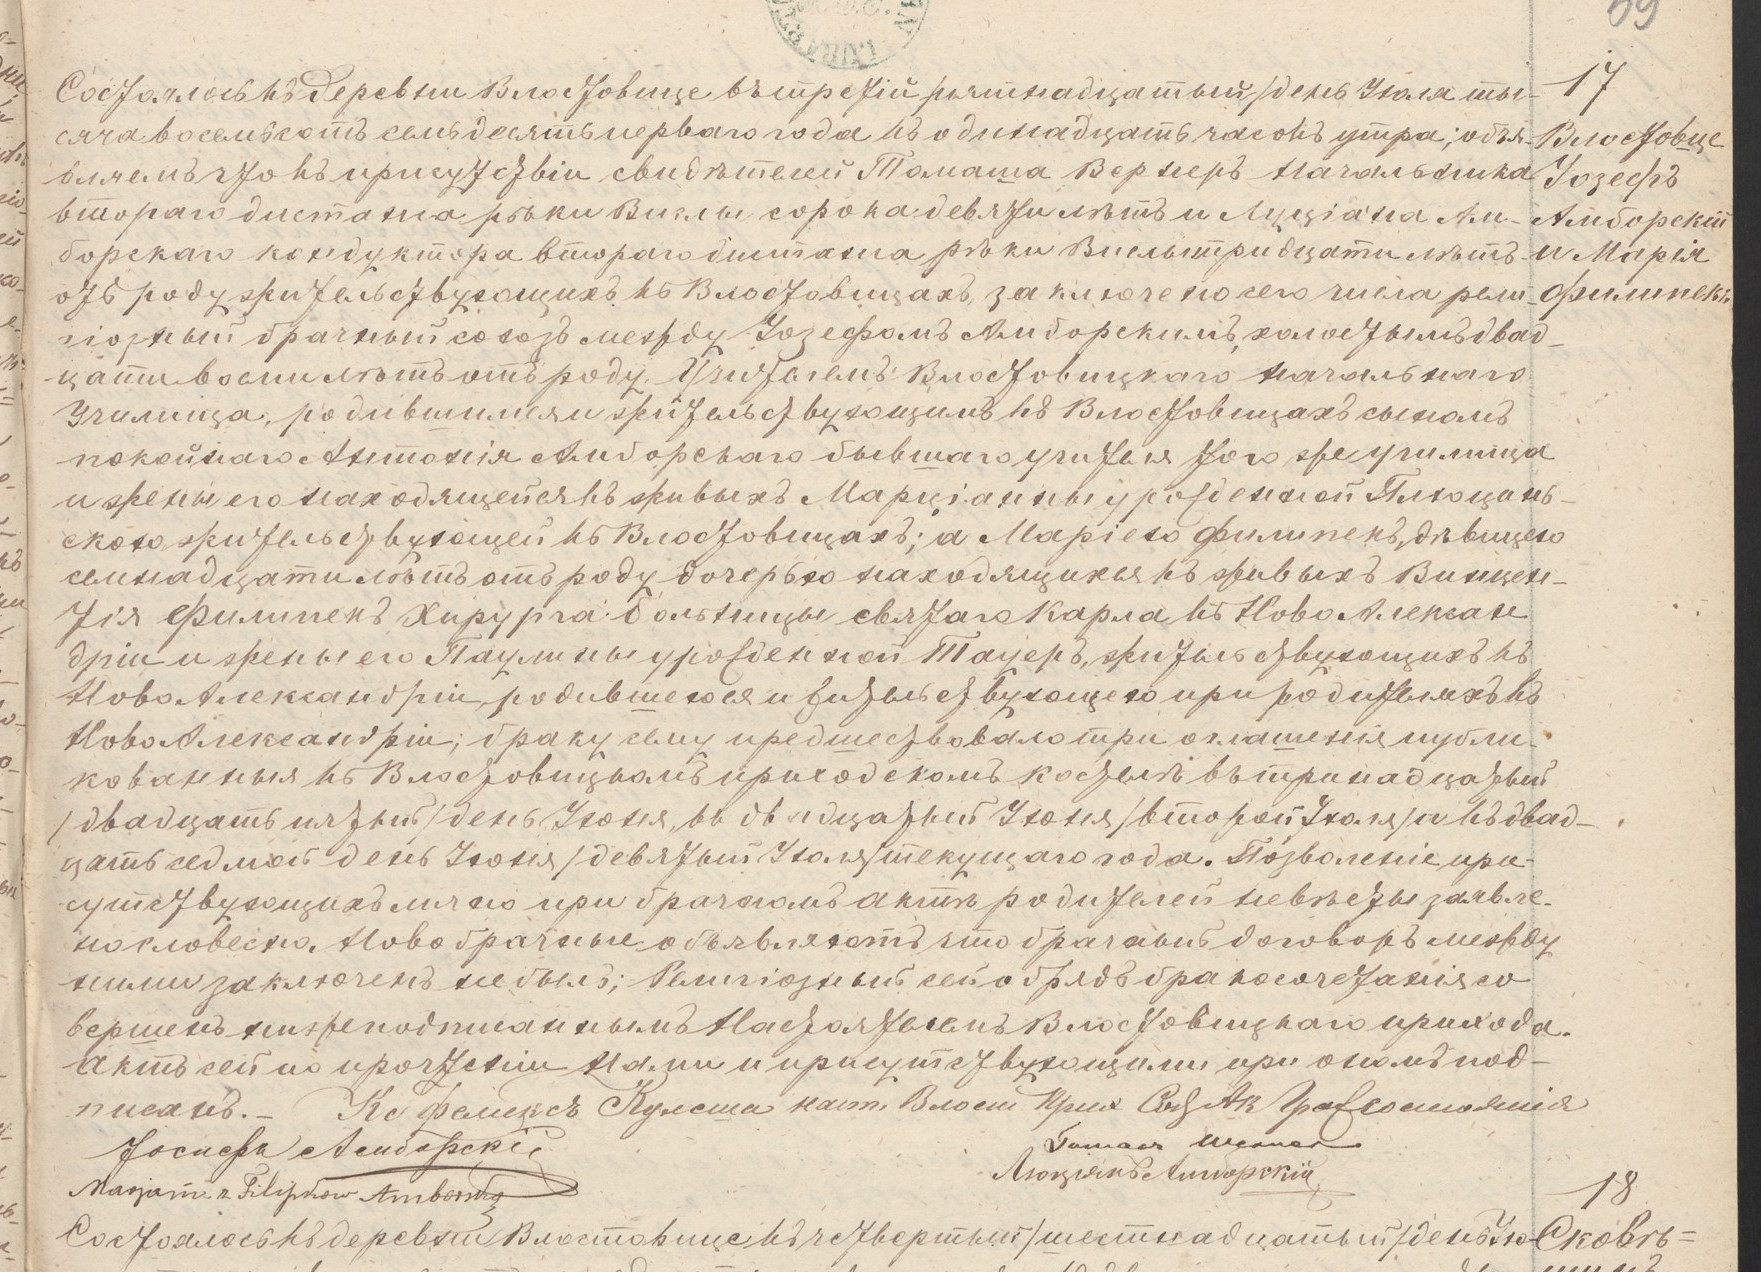 59
17
Состоялось въ деревни Влостовице въ третій /пятнадцатый/ день Іюля ты-
сяча восемьсотъ семьдесятъ перваго года въ одинадцать часовъ утра; объя-
вляемъ что въ присутствіи свидѣтелей Томаша Вернеръ начальника
втораго дистанса рѣки Вислы сорока девяти лѣтъ и Луціана Ам-
борскаго кондуктора втораго дистанса рѣки Вислы тридцати лѣтъ
отъ роду жительствующихъ въ Влостовицахъ, заключено сего числа рели-
гіозный брачный союзъ между Іозефомъ Амборскимъ, холостымъ двад-
цати восьми лѣтъ отъ роду, Учителемъ Влостовицкаго начальнаго
Училища, родившимся и жительствующимъ въ Влостовицахъ сыномъ
покойнаго Антонія Амборскаго бывшаго учителя того же училища
и жены его находящейся въ живыхъ Марціанны урожденной Площинь-
ского жительствующей въ Влостовицахъ; а Маріею Филипекъ, дѣвицею
семнадцати лѣтъ отъ роду дочерью находящихся въ живыхъ Винцен-
тія Филипекъ Хирурга больницы святаго Карла въ Ново Алексан
дріи и жены его Паулины урожденной Тауеръ, жительствующихъ въ
Ново Александріи, родившеюся и жительствующею при родителяхъ въ
Ново Александріи; браку сему предшествовало три оглашенія публи-
кованныя въ Влостовицкомъ приходскомъ костелѣ въ тринадцатый
/двадцать пятый/ день Іюня, въ двадцатый Іюня /второй Іюля/ и въ двад-
цать седмой день Іюня /девятый Іюля/ текущаго года. Позволеніе при-
сутствующихъ лично при брачномъ актѣ родителей невѣсты заявле-
но словесно. Новобрачные объявляютъ что брачный договоръ между
ними заключенъ не былъ; Религіозный сей обрядъ бракосочетанія со
вершенъ нижеподписаннымъ Настоятелемъ Влостовицкаго прихода.
Актъ сей по прочтеніи нами и присутствующими при ономъ под-
писанъ. – Кс Феликсъ Кулеша наст. Влост Прих Сод Ак Гра Состоянія
Іосифъ Амборскій
Tomasz Werner
Люціянъ Амборскій
Marjanna z Filipków Amborska
Влостовице
Іозефъ
Амборскій
и Марія
Филипекъ
18
Состоялось въ деревни Влостовице въ четвертый /шестнадцатый/ день Ію-
Сковѣ-